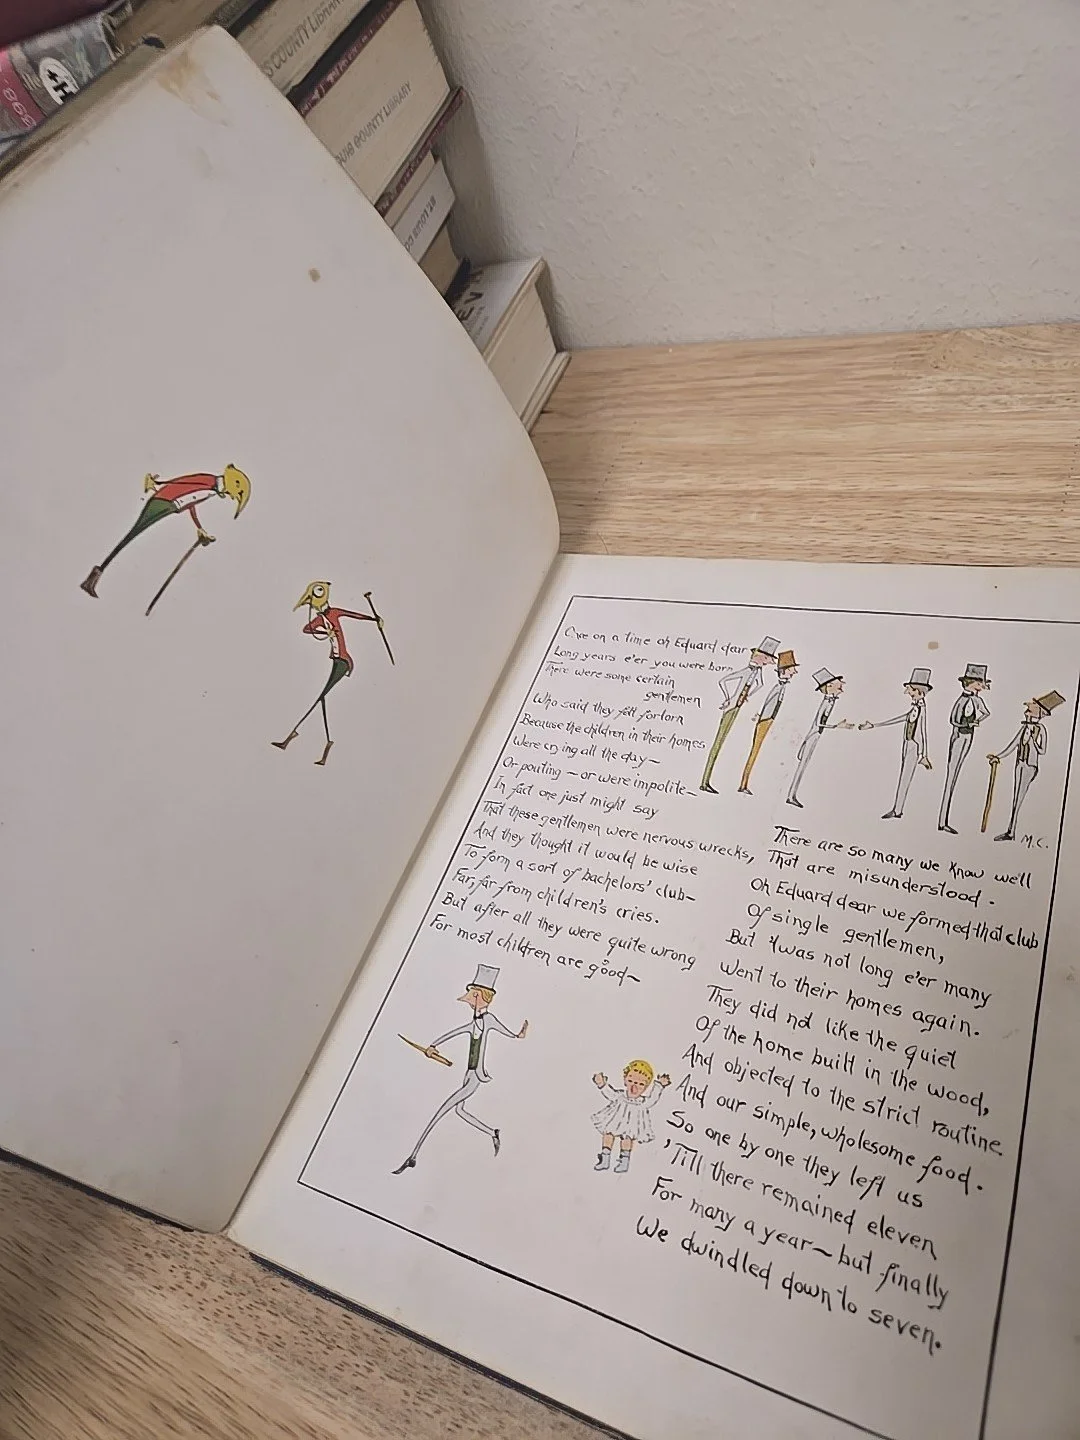 398.
S COUNTY LIBRAR
COUNTY LIBRARY
Once on a time oh Eduard dear
Long years e'er you were born
There were some certain
gentlemen
Who said they felt forlorn
Because the children in their homes
Were crying all the day—
Or pouting — or were impolite—
In fact one just might say
That these gentlemen were nervous wrecks,
And they thought it would be wise
To form a sort of bachelors' club—
Far, far from children's cries.
But after all they were quite wrong
For most children are good—
M.C.
There are so many we know we'll
That are misunderstood.
Oh Eduard dear we formed that club
Of single gentlemen,
But 'twas not long e'er many
Went to their homes again.
They did not like the quiet
Of the home built in the wood,
And objected to the strict routine
And our simple, wholesome food.
So one by one they left us
'Till there remained eleven
For many a year— but finally
We dwindled down to seven.